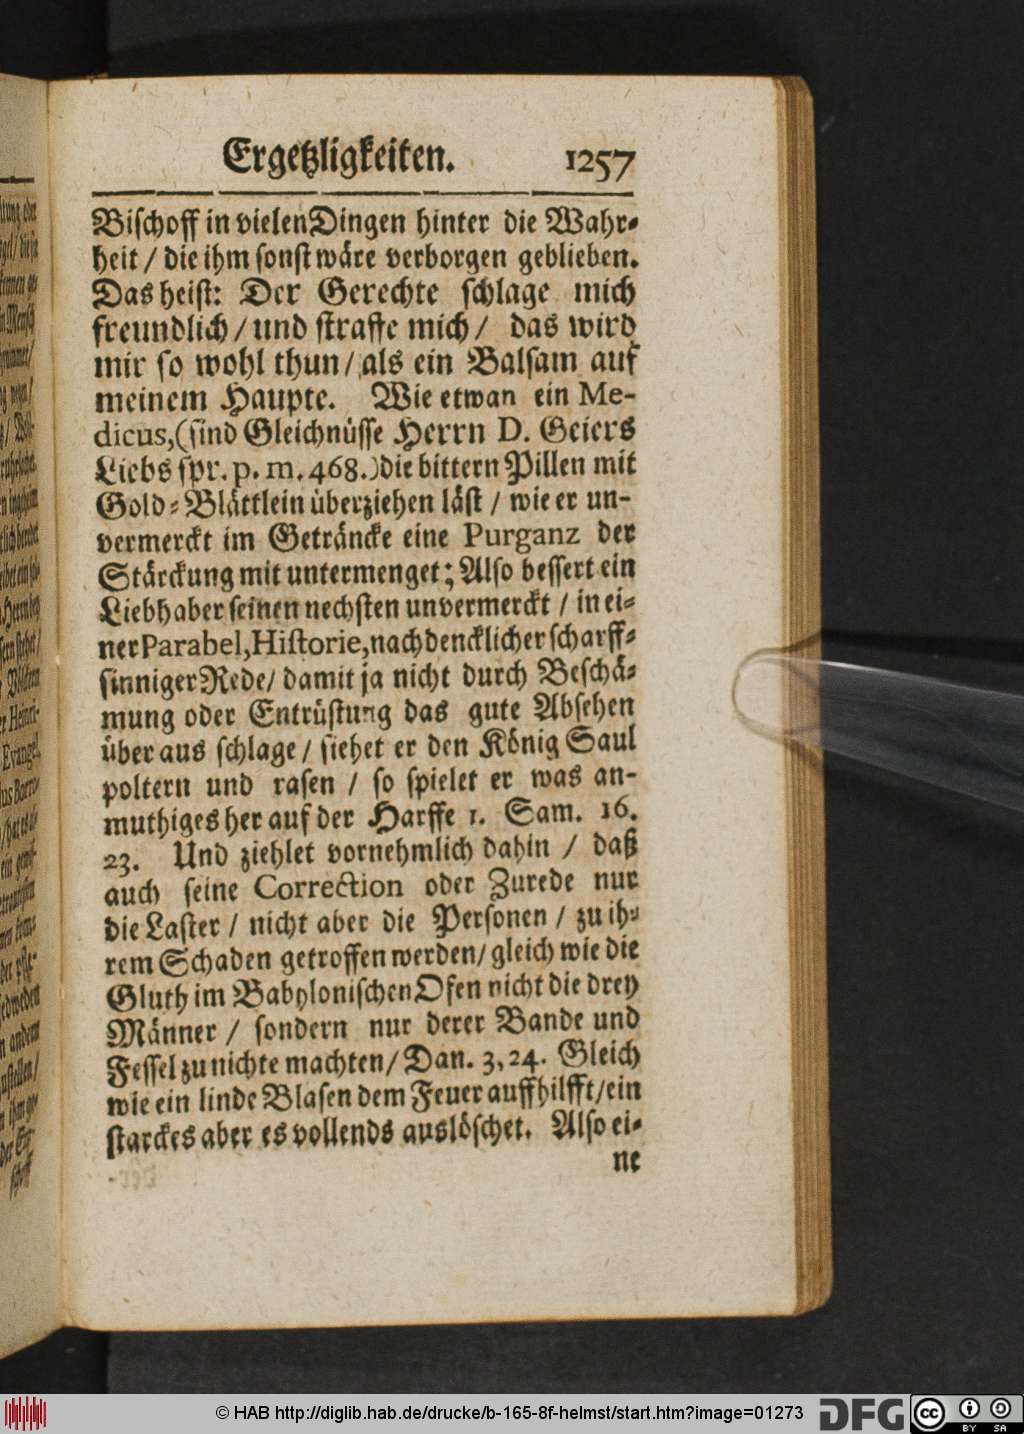 Ergetzligkeiten. 1257
Bischoff in vielen Dingen hinter die Wahr-
heit / die ihm sonst wäre verborgen geblieben.
Das heist: Der Gerechte schlage mich
freundlich / und straffe mich / das wird
mir so wohl thun / als ein Balsam auf
meinem Haupte. Wie etwan ein Me-
dicus, (sind Gleichnüsse Herrn D. Geiers
Liebs spr. p. m. 468.) die bittern Pillen mit
Gold-Blättlein überziehen läst / wie er un-
vermerckt im Geträncke eine Purganz der
Stärckung mit untermenget; Also bessert ein
Liebhaber seinen nechsten unvermerckt / in ei-
ner Parabel, Historie, nachdencklicher scharff-
sinniger Rede / damit ja nicht durch Beschä-
mung oder Entrüstung das gute Absehen
über aus schlage / siehet er den König Saul
poltern und rasen / so spielet er was an-
muthiges her auf der Harffe 1. Sam. 16.
23. Und ziehlet vornehmlich dahin / daß
auch seine Correction oder Zurede nur
die Laster / nicht aber die Personen / zu ih-
rem Schaden getroffen werden / gleich wie die
Gluth im Babylonischen Ofen nicht die drey
Männer / sondern nur derer Bande und
Fessel zu nichte machten / Dan. 3, 24. Gleich
wie ein linde Blasen dem Feuer auffhilfft / ein
starckes aber es vollends auslöschet. Also ei-
ne
© HAB http://diglib.hab.de/drucke/b-165-8f-helmst/start.htm?image=01273
DFG
cc BY SA